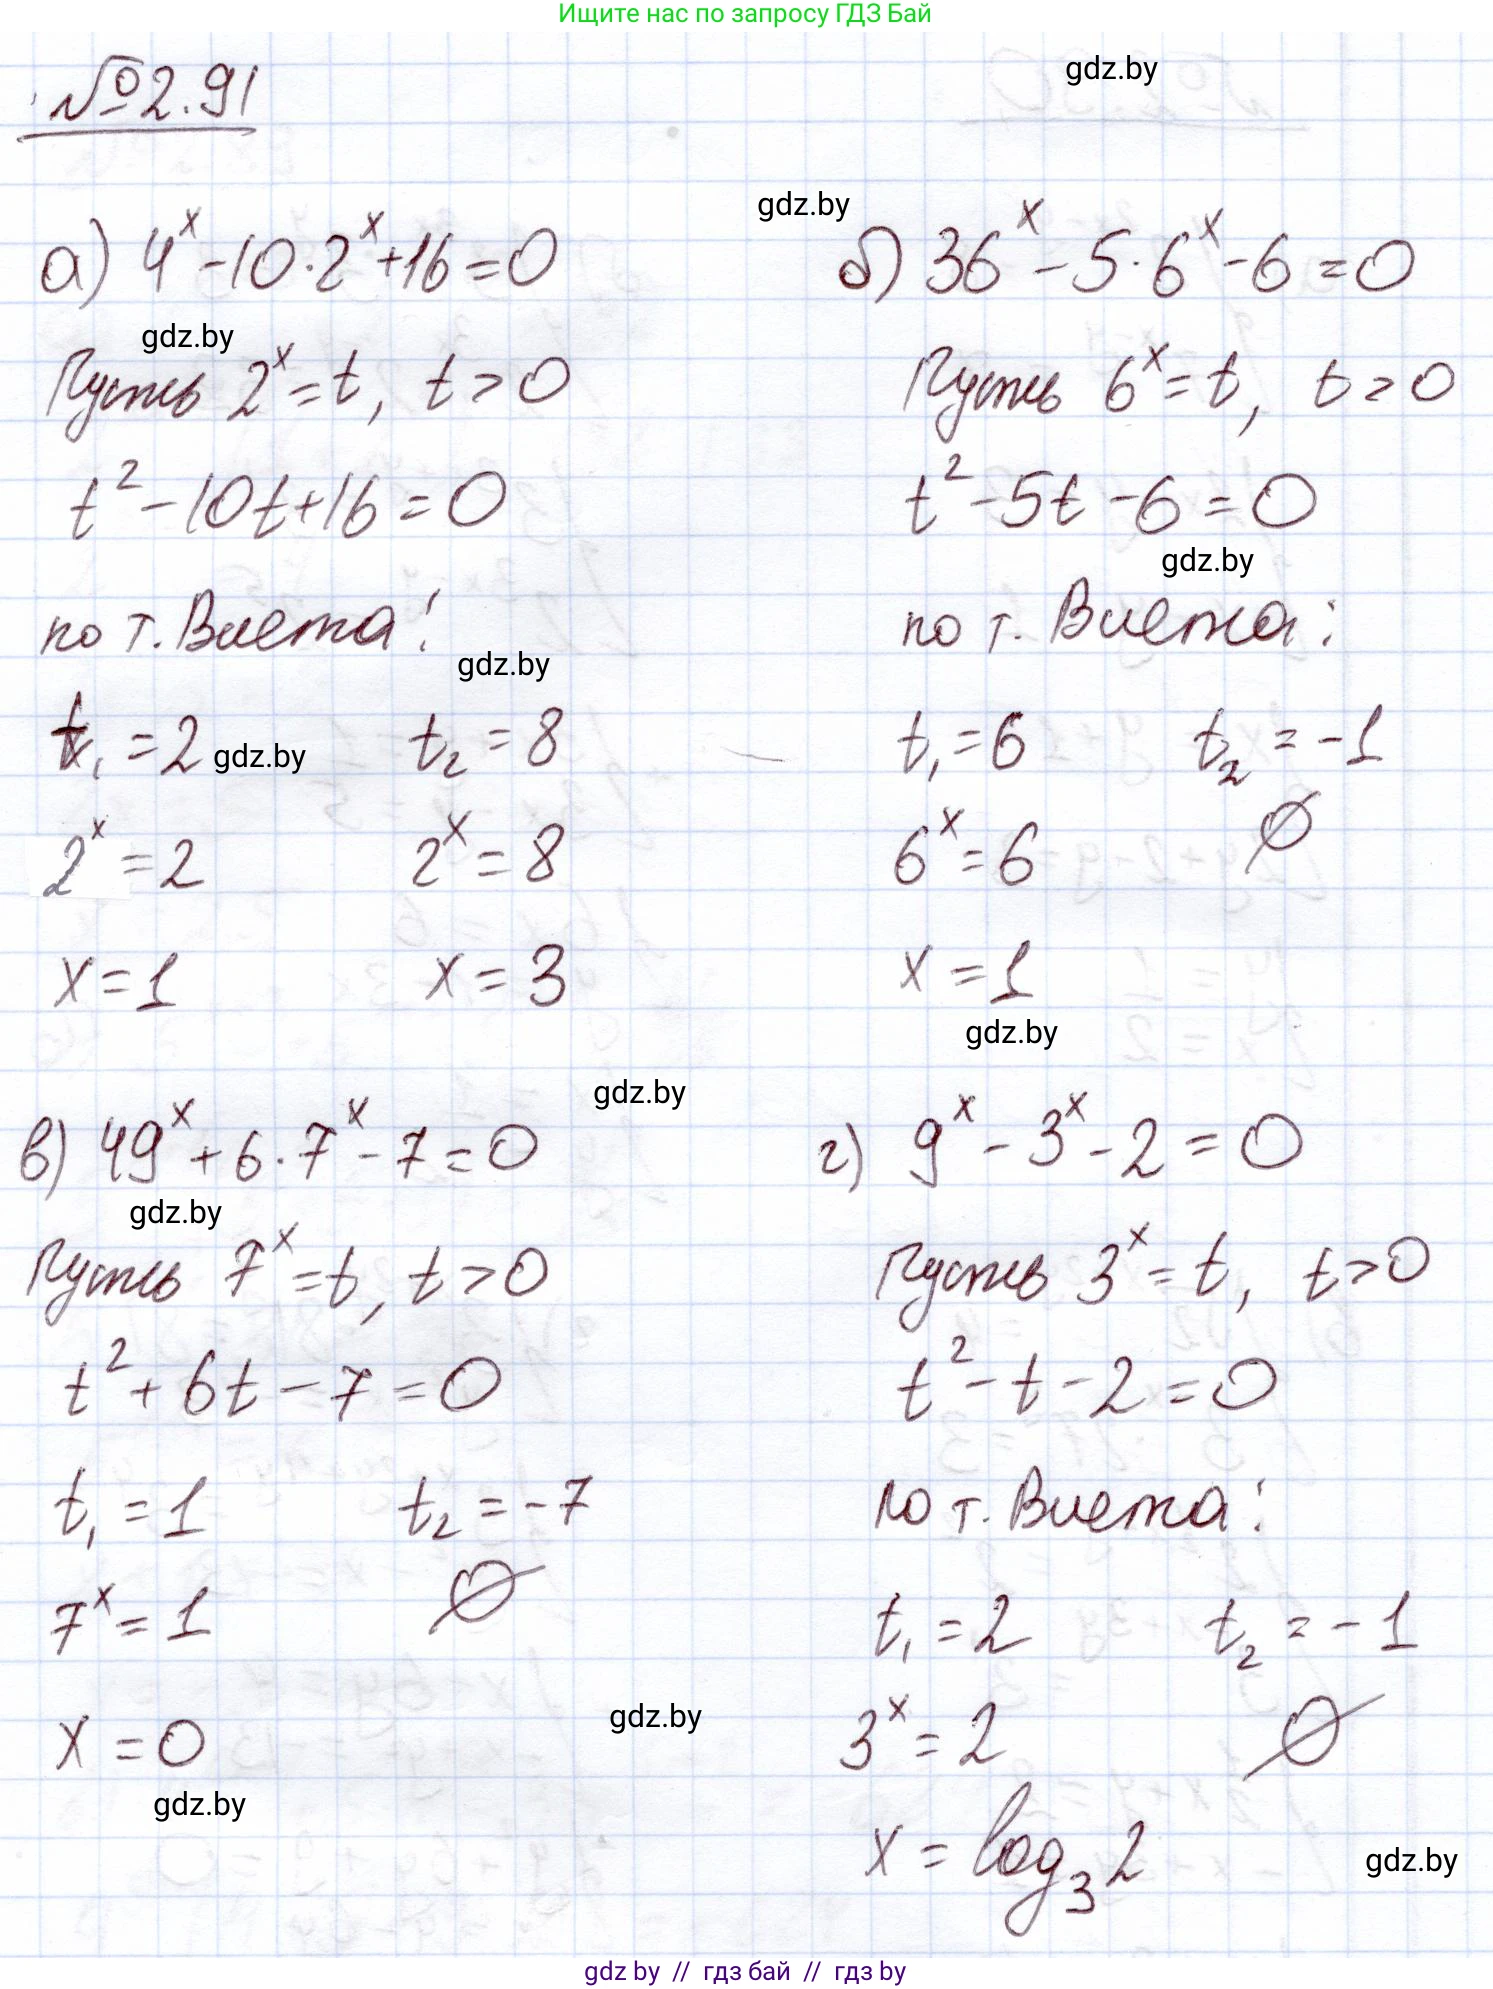 Ищите нас по запросу ГДЗ Бай
№2.91
gdz.by
gdz.by
а) 4^x - 10·2^x + 16 = 0
gdz.by
Пусть 2^x = t, t > 0
t^2 - 10t + 16 = 0
по т. Виета:
gdz.by
t₁ = 2 gdz.by t₂ = 8
2^x = 2 2^x = 8
x = 1 x = 3
б) 36^x - 5·6^x - 6 = 0
Пусть 6^x = t, t > 0
t^2 - 5t - 6 = 0
gdz.by
по т. Виета:
t₁ = 6 t₂ = -1
6^x = 6 ∅
x = 1
gdz.by
gdz.by
в) 49^x + 6·7^x - 7 = 0
gdz.by
Пусть 7^x = t, t > 0
t^2 + 6t - 7 = 0
t₁ = 1 t₂ = -7
7^x = 1 ∅
x = 0
gdz.by
gdz.by
г) 9^x - 3^x - 2 = 0
Пусть 3^x = t, t > 0
t^2 - t - 2 = 0
по т. Виета:
t₁ = 2 t₂ = -1
3^x = 2 ∅
x = log₃ 2
gdz.by
gdz by // гдз бай // гдз by